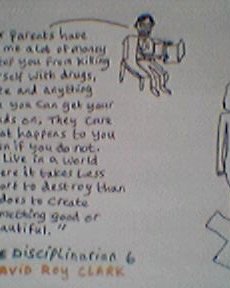 parents have
me a lot of money
you from killing
self with drugs,
and anything
you can get your
ds on. They care
at happens to you
n if you do not.
Live in a world
ere it takes less
ort to destroy than
does to create
mething good or
autiful."
Disciplinarian 6
AVID ROY CLARK